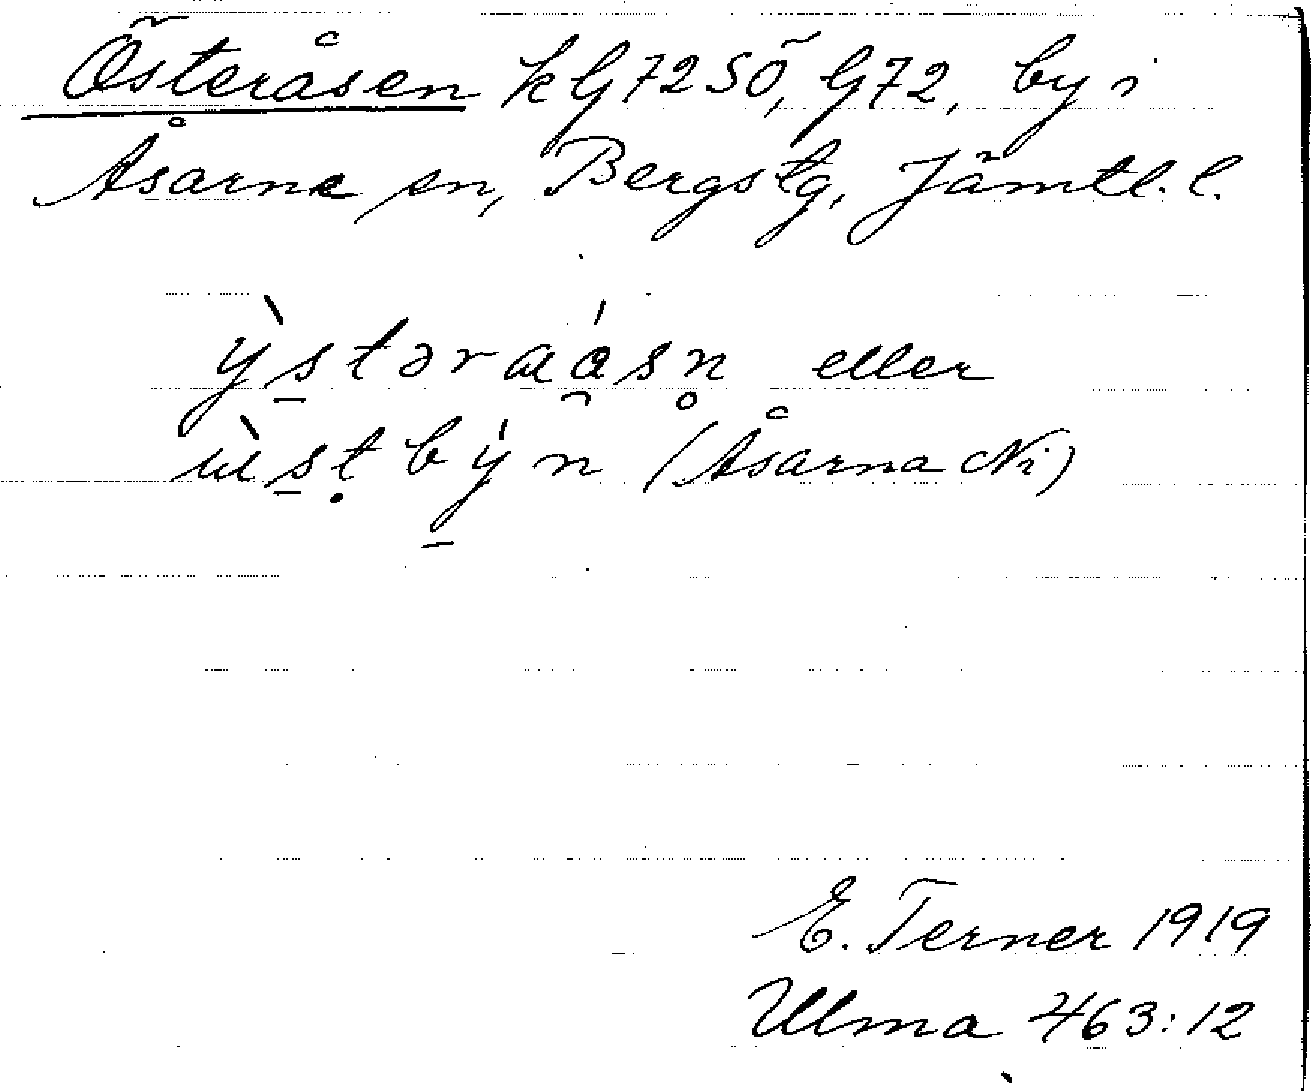 Österåsen k G72SÖ, G72, by i
Åsarne sn, Bergs tg, Jämtl. l.
ỳs̲təraɑ́sn̥ eller
ɯ̀s̲ṭbý̲n (Åsarna Ni)
E. Terner 1919
Ulma 463:12